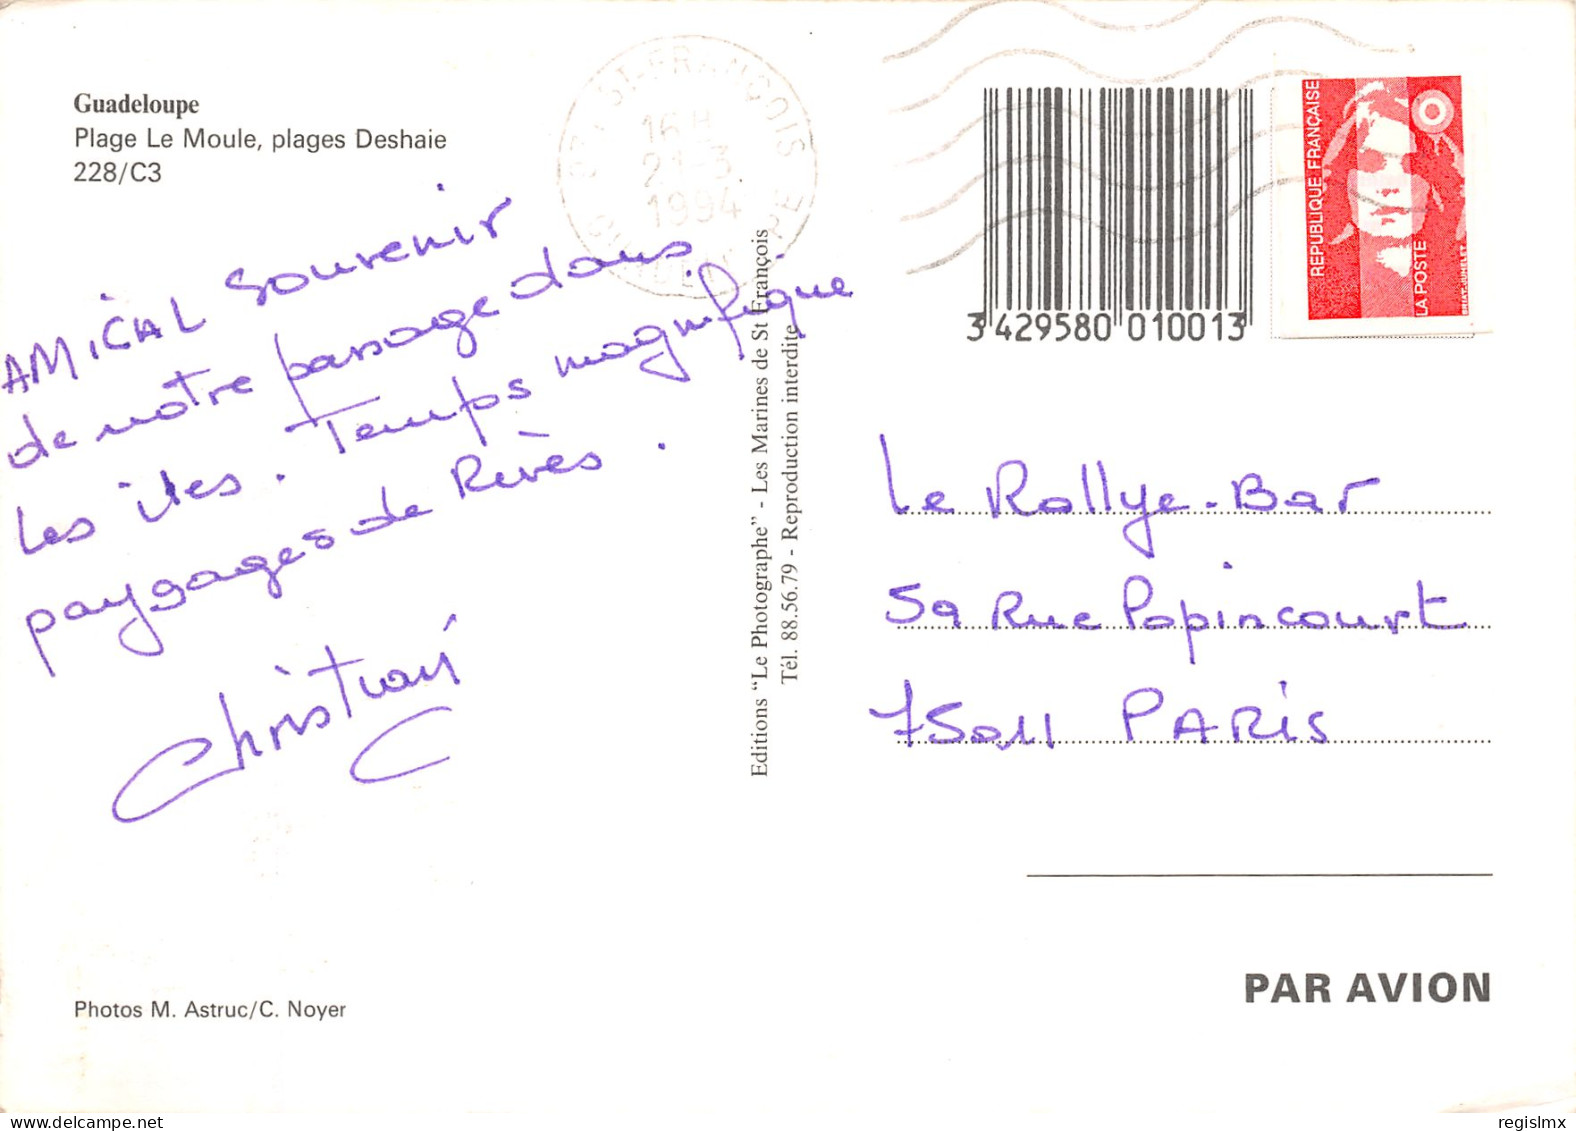 Guadeloupe
Plage Le Moule, plages Deshaie
228/C3
AMICAL Souvenir
de notre passage dans
Les iles. Temps magnifique
paysages de Rêves.
Christian
Photos M. Astruc/C. Noyer
ST-FRANÇOIS
16 H
21-3
1994
Editions "Le Photographe" - Les Marines de St François
Tél. 88.56.79 - Reproduction interdite
3 429580 010013
REPUBLIQUE FRANÇAISE
LA POSTE
Le Rallye-Bar
59 Rue Popincourt
75011 PARIS
PAR AVION
regislmx